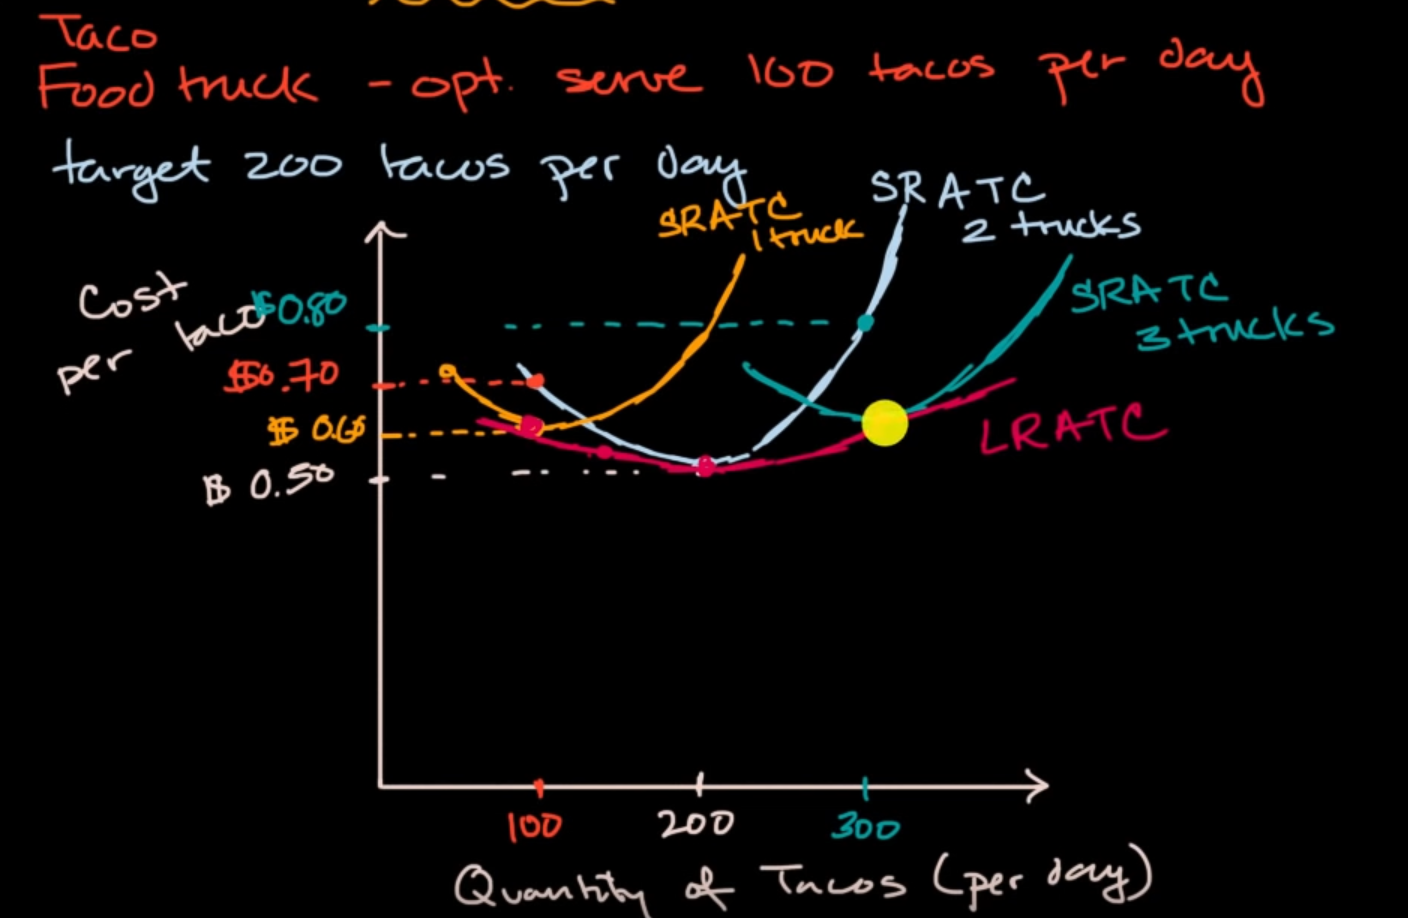 Taco
Food truck - opt. serve 100 tacos per day
target 200 tacos per day
SRATC
1 truck
SRATC
2 trucks
Cost
per taco
$0.80
SRATC
3 trucks
$0.70
$ 0.60
LRATC
$ 0.50
100
200
300
Quantity of Tacos (per day)